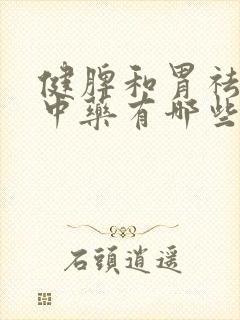 健脾和胃祛
中药有哪些
石頭逍遥